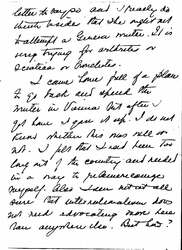 letter to myself and I really do
think besides that she ought not
to attempt a Geneva winter. It is
very trying for arthritis or
sciatica or bronchitis.
I came home full of a plan
to go back and spend the
winter in Vienna but after I
got home I gave it up. I do not
know whether this was well or
not. I felt that I had been too
long out of the country and needed
in a way to reAmericanize
myself. Also I am not at all
sure that internationalism does
not need advocating more here
than anywhere else. But how?